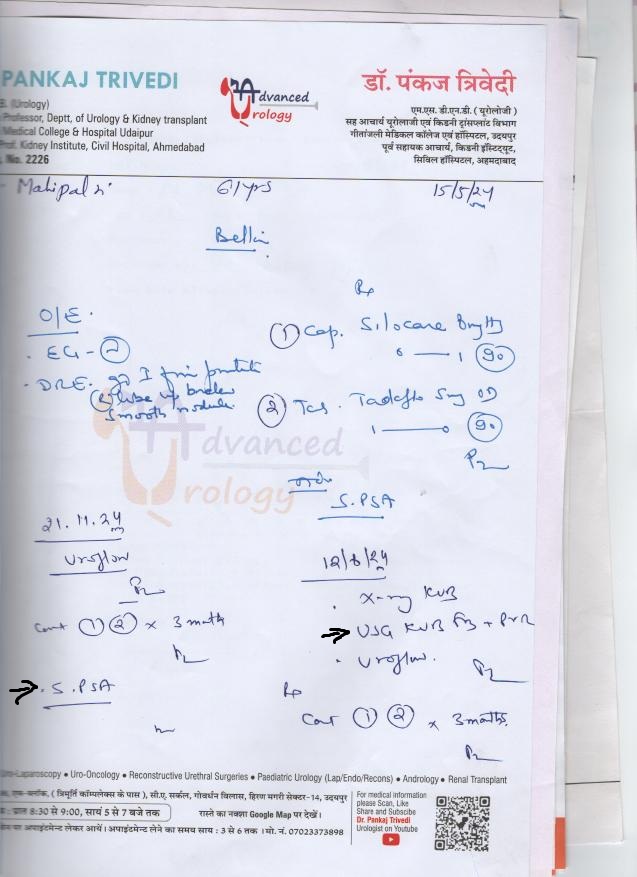 PANKAJ TRIVEDI
(Urology)
Professor, Deptt. of Urology & Kidney transplant
Medical College & Hospital Udaipur
Prof. Kidney Institute, Civil Hospital, Ahmedabad
No. 2226
Advanced
Urology
डॉ. पंकज त्रिवेदी
एम.एस. डी.एन.बी. ( यूरोलोजी )
सह आचार्य यूरोलोजी एवं किडनी ट्रांसप्लांट विभाग
गीतांजली मेडिकल कॉलेज एवं हॉस्पिटल, उदयपुर
पूर्व सहायक आचार्य, किडनी इंस्टिट्यूट,
सिविल हॉस्पिटल, अहमदाबाद
Mahipal 61yrs 15/5/24
O/E.
EG -
DRE.
smooth nodule
Rx
① Cap. Silocare
0 — 1 (90)
② Tab. 5mg OD
1 — 0 (90)
Advanced
Urology
S. PSA
21.11.24
Uroflow
Cont ① ② x 3 month
S. PSA
12/8/24
X-ray KUB
USG KUB + PVR
Uroflow.
Rx
Cont ① ② x 3 months.
Uro-Laparoscopy • Uro-Oncology • Reconstructive Urethral Surgeries • Paediatric Urology (Lap/Endo/Recons) • Andrology • Renal Transplant
( त्रिमूर्ति कॉम्पलेक्स के पास ), सी.ए. सर्कल, गोवर्धन विलास, हिरण मगरी सेक्टर-14, उदयपुर
: प्रातः 8:30 से 9:00, सायं 5 से 7 बजे तक रास्ते का नक्शा Google Map पर देखें।
अपाइंटमेन्ट लेकर आयें। अपाइंटमेन्ट लेने का समय सायः 3 से 6 तक । मो. नं. 07023373898
For medical information
please Scan, Like
Share and Subscibe
Dr. Pankaj Trivedi
Urologist on Youtube